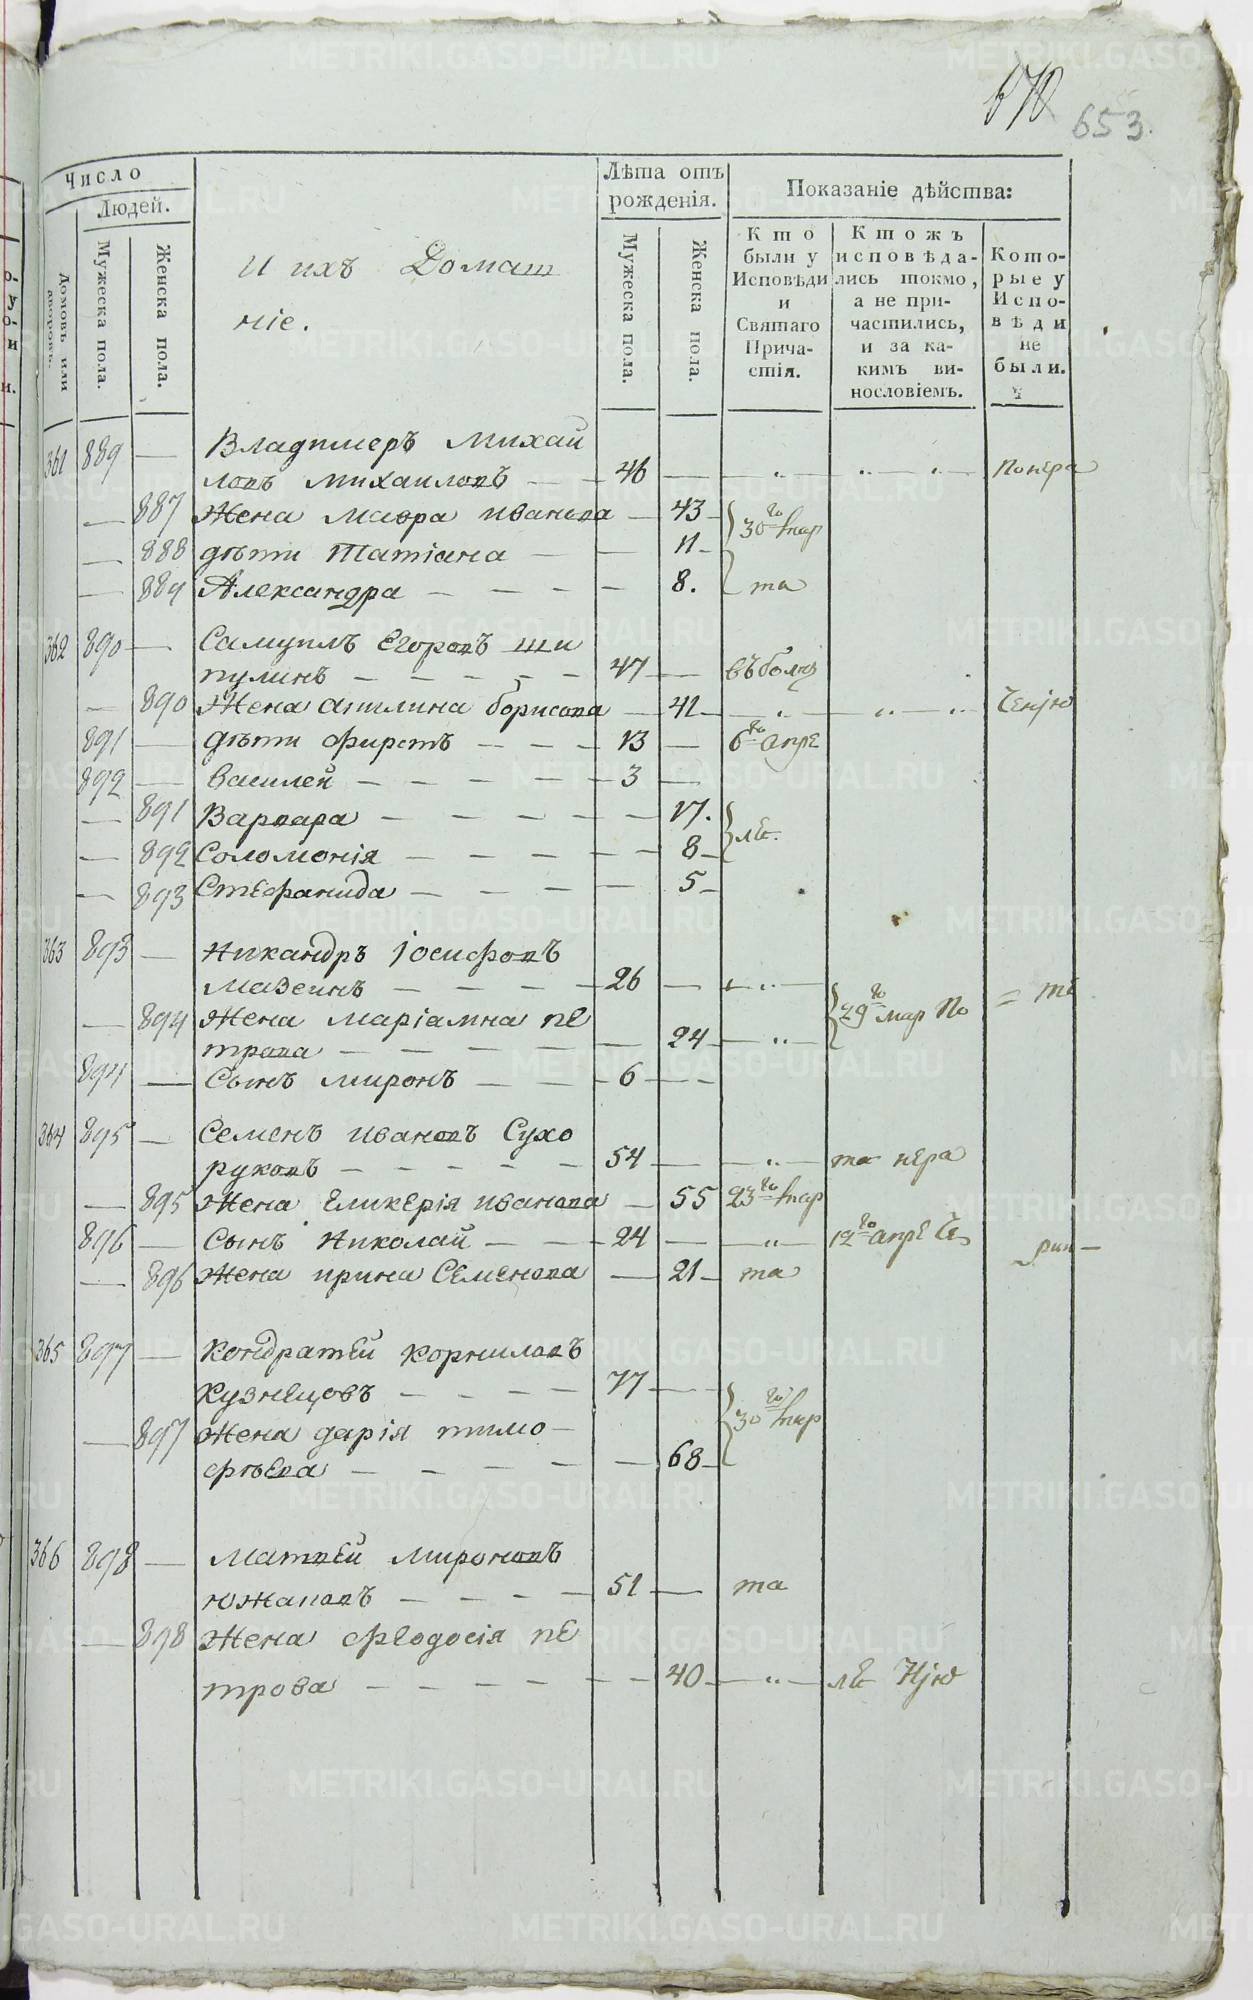 670 653.
Число
Людей.
Домовъ или дворовъ.
Мужеска пола.
Женска пола.
И ихъ Домаш
ніе.
Лѣта отъ
рожденія.
Мужеска пола.
Женска пола.
Показаніе дѣйства:
Кто
были у
Исповѣди
и
Святаго
Прича-
стія.
Ктожъ
исповѣда-
лись токмо,
а не при-
частились,
и за ка-
кимъ ви-
нословіемъ.
Кото-
рые у
Испо-
вѣди
не
были.
361 889 — Владимеръ Михай
ловъ Михаиловъ — 46 — — — понера
— 887 Жена Мавра Иванова — 43 30го мар
— 888 дѣти Татіана — — 11
— 889 Александра — — 8. та
362 890 — Самуилъ Егоровъ Ши
пулинъ — 47 — въ
— 890 Жена Борисова — 41 — —
891 — дѣти Фирстъ — 13 — 6го апре
892 — Василей — 3 —
— 891 Варвара — 17.
— 892 Соломонія — 8 ле.
— 893 Стефанида — 5
363 893 — Никандръ Іосифовъ
Мазеинъ — 26 — —
— 894 Жена Маріамна Пе 29го мар по = те
трова — 24 —
894 — Сынъ Миронъ — 6 —
364 895 — Семенъ Ивановъ Сухо
руковъ — 54 — — та нера
— 895 Жена Гликерія Иванова — 55 23го мар
896 — Сынъ Николай — 24 — — 12го апре
— 896 Жена Ирина Семенова — 21 та
365 897 — Кондратей Корниловъ
Кузнецовъ — 77 — 30го мар
— 897 Жена Дарія Тимо
фѣева — 68
366 898 — Матвей Мироновъ
Южаковъ — 51 — та
— 898 Жена Феодосія Пе
трова — 40 — ле
METRIKI.GASO-URAL.RU